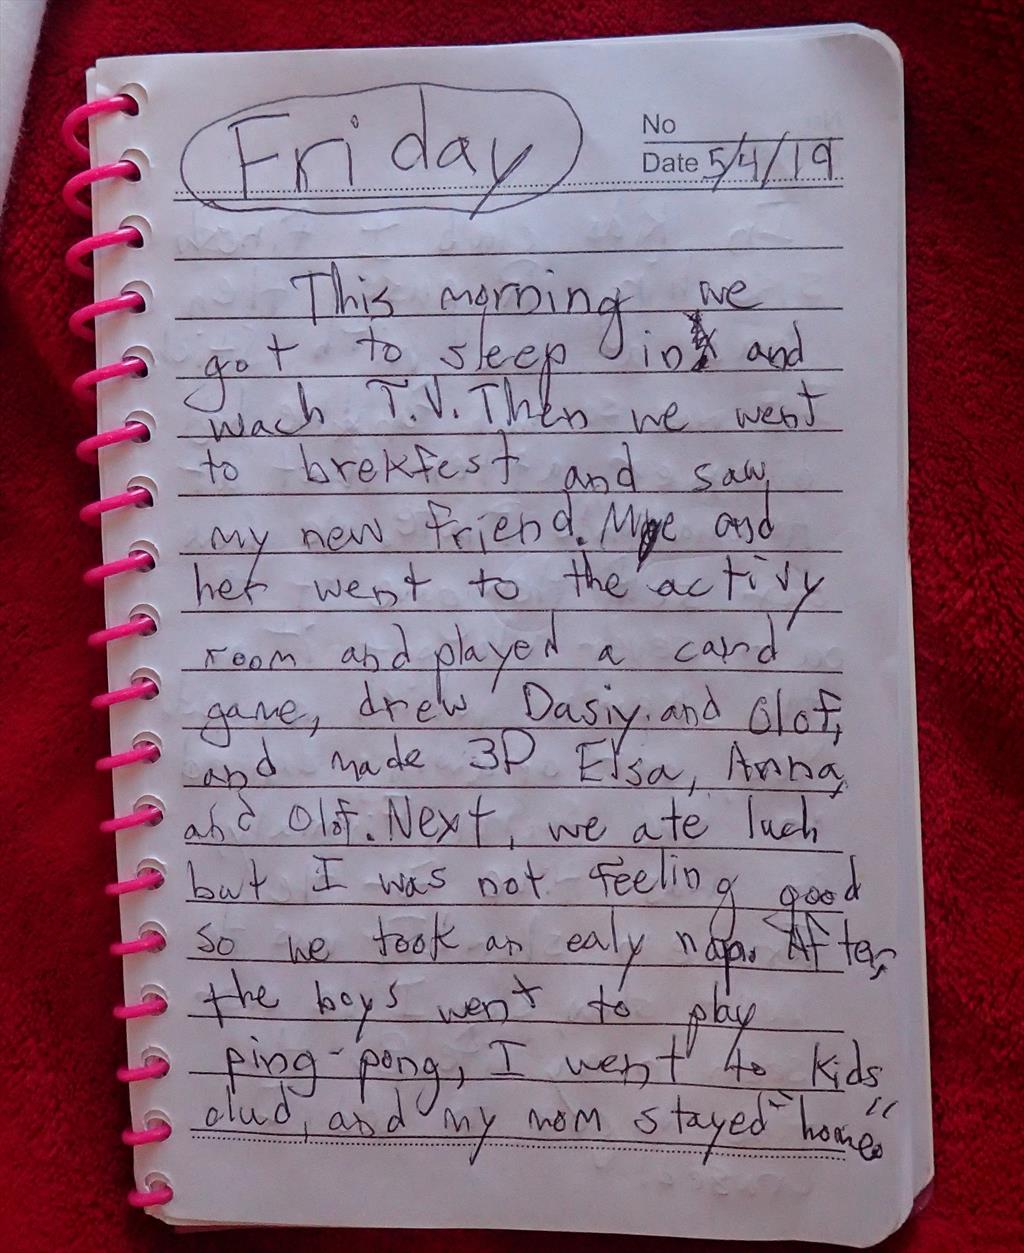 Friday
No
Date 5/4/19
This morning we
got to sleep in and
wach T.V. Then we went
to brekfest and saw
my new friend. Me and
her went to the activy
room and played a card
game, drew Dasiy and Olof,
and made 3D Elsa, Anna,
and Olof. Next, we ate luch
but I was not feeling good
so we took an ealy nap. After,
the boys went to play
ping-pong, I went to kids
clud, and my mom stayed "home."